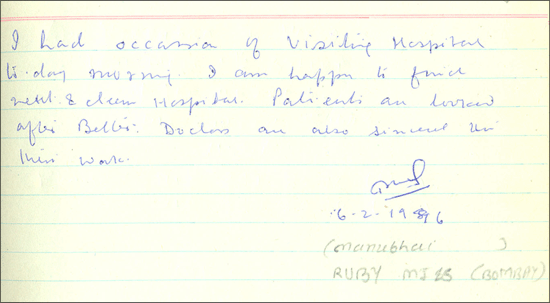 I had occassion of Visiting Hospital
to-day morning. I am happy to find
neat & clean Hospital. Patients are looked
after Better. Doctors are also sincere in
their work.
6-2-1996
(Manubhai )
RUBY MILLS (BOMBAY)